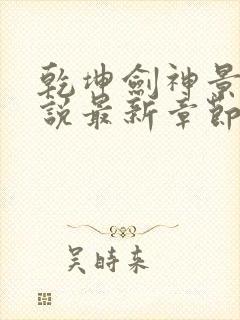 乾坤劍神景
說最新章節
吴時来